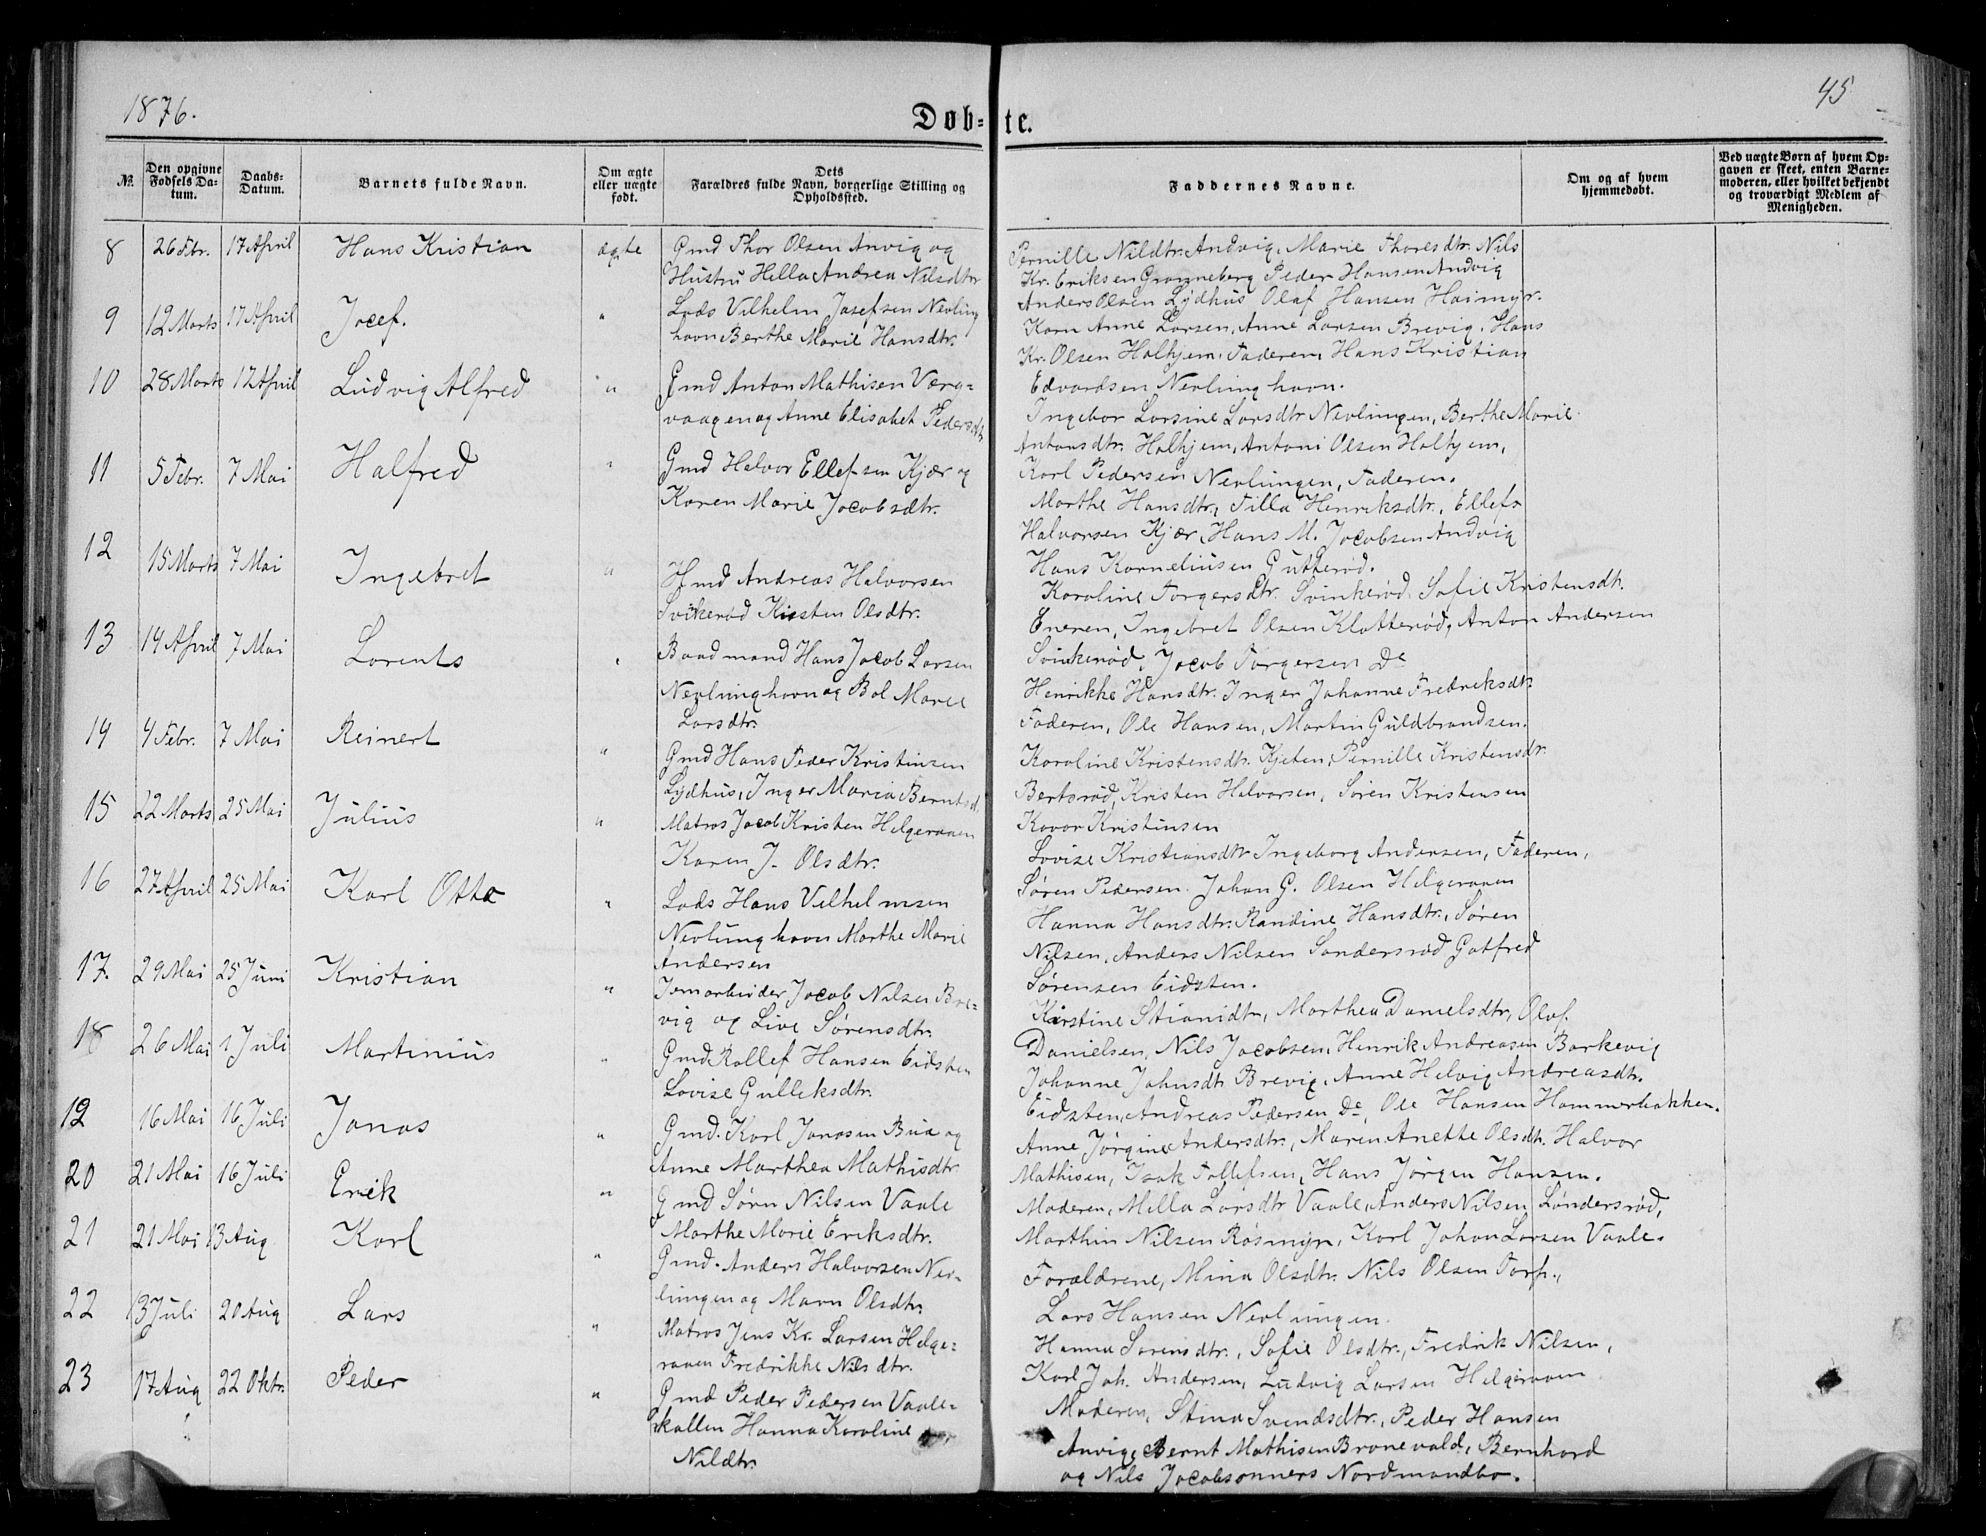 1876.
45
Døb-
te.
№.
Den opgivne Fødsels Datum.
Daabs-Datum.
Barnets fulde Navn.
Om ægte eller uægte født.
Dets Forældres fulde Navn, borgerlige Stilling og Opholdssted.
Faddernes Navne.
Om og af hvem hjemmedøbt.
Ved uægte Børn af hvem Opgaven er skeet, enten Barnemoderen, eller hvilket bekjendt og troværdigt Medlem af Menigheden.
8 26 Fbr. 17 April Hans Kristian ægte Gmd Thor Olsen Anvig og
Hustru Hella Andrea Nilsdtr
Pernille Nildtr. Andvig, Marie Thoresdtr. Nils
Kr. Eriksen Granneberg Peder Hansen Andvig
Anders Olsen Lydhus Olaf Hansen Haimyr.
9 12 Marts 17 April Josef. " Lods Vilhelm Josefsen Nevling
havn Berthe Marie Hansdtr.
Karn Anne Larsen, Anne Larsen Brevig, Hans
Kr. Olsen Halhjem, Faderen, Hans Kristian
Edvardsen Nevlinghavn.
10 28 Marts 17 April Ludvig Alfred " Gmd Anton Mathisen Værg-
vaagen og Anne Elisabet Pedersdtr
Ingebor Larsine Larsdtr Nevlingen, Berthe Marie
Antonsdtr. Halhjem, Antoni Olsen Halhjem,
Karl Pedersen Nevlungen, Faderen.
11 5 Febr. 7 Mai Halfred " Gmd Halvor Ellefsen Kjær og
Karen Marie Jacobsdtr.
Marthe Hansdtr, Tilla Henriksdtr., Ellefs
Halvorsen Kjær, Hans M. Jacobsen Andvig
Hans Korneliusen Gutterød.
12 15 Marts 7 Mai Ingebret " Hmd Andreas Halvorsen
Svikerød Kisten Olsdtr.
Karoline Torgersdtr. Svinkerød. Sofie Kristensdt.
Eneren, Ingebret Olsen Klatterød, Anton Andersen
Svinkerød, Jacob Torgersen De
13 14 April 7 Mai Lorents " Baadmand Hans Jacob Larsen
Nevlunghavn og Bol Marie
Larsdtr.
Henrikke Hansdtr. Inger Johanne Fredriksdt.
Faderen, Ole Hansen, Martin Guldbrandsen.
14 4 Febr. 7 Mai Reinert " Gmd Hans Peder Kristinsen
Lydhus, Inger Maria Berntsd.
Karoline Kristensdtr. Kjeten, Pernille Kristensdtr.
Bertsrød, Kristen Halvorsen, Søren Kristensen
Kovor Kristinsen
15 22 Marts 25 Mai Julius " Matros Jacob Kristen Helgeraaen
Karen J. Olsdtr.
Lovise Kristiansdtr Ingeborg Andersen, Faderen,
Søren Pedersen. Johan G. Olsen Helgeraaen
16 27 April 25 Mai Karl Otto " Lods Hans Vilhelmsen
Nevlunghavn Marthe Marie
Andersen
Hanna Hansdtr. Randine Hansdtr., Søren
Nilsen, Anders Nilsen Sondersrød Gotfred
Sørensen Eidsten.
17. 29 Mai 25 Juni Kristian " Jernarbeider Jacob Nilsen Bre-
vig og Live Sørensdtr.
Kirstine Stianidtr, Marthea Danielsdtr, Olof.
Danielsen, Nils Jacobsen, Henrik Andreasen Barkevig
18 26 Mai 1 Juli Martinius " Gmd. Rollef Hansen Eidsten
Lovise Gulleksdtr.
Johanne Johnsdtr Brevig, Anne Helvig Andreasdtr.
Eidsten, Andreas Pedersen De, Ole Hansen Hammerbakken.
19 16 Mai 16 Juli Jonas " Gmd. Karl Jonasen Bua og
Anne Marthea Mathisdtr
Anne Jørgine Andersdtr., Maren Anette Olsdt. Halvor
Mathisen, Isak Tollefsen, Hans Jørgen Hansen.
20 21 Mai 16 Juli Erik " Gmd Sørn Nilsen Vaale
Marthe Marie Eriksdtr.
Moderen, Milla Larsdtr Vaale, Anders Nilsen Søndersrød,
Marthin Nilsen Røsmyr, Karl Johan Larsen Vaale.
21 21 Mai 13 Aug Karl " Gmd. Anders Halvorsen Nev-
lungen og Marn Olsdtr.
Forældrene, Mina Olsdtr. Nils Olsen Torp.,
Lars Hansen Nevlungen.
22 13 Juli 20 Aug Lars " Matros Jens Kr. Larsen Helge-
raaen Fredrikke Nilsdtr.
Hanna Sørensdtr., Sofie Olsdtr., Fredrik Nilsen,
Karl Joh. Andersen, Ludvig Larsen Helgeraaen
23 17 Aug 22 Oktr. Peder " Gmd Peder Pedersen Vaale-
kallen Hanna Karoline
Nildtr.
Moderen, Stina Svendsdtr., Peder Hansen
Anvig, Bernt Mathisen Bronevald, Bernhard
og Nils Jacobsonners Nordmandbo.